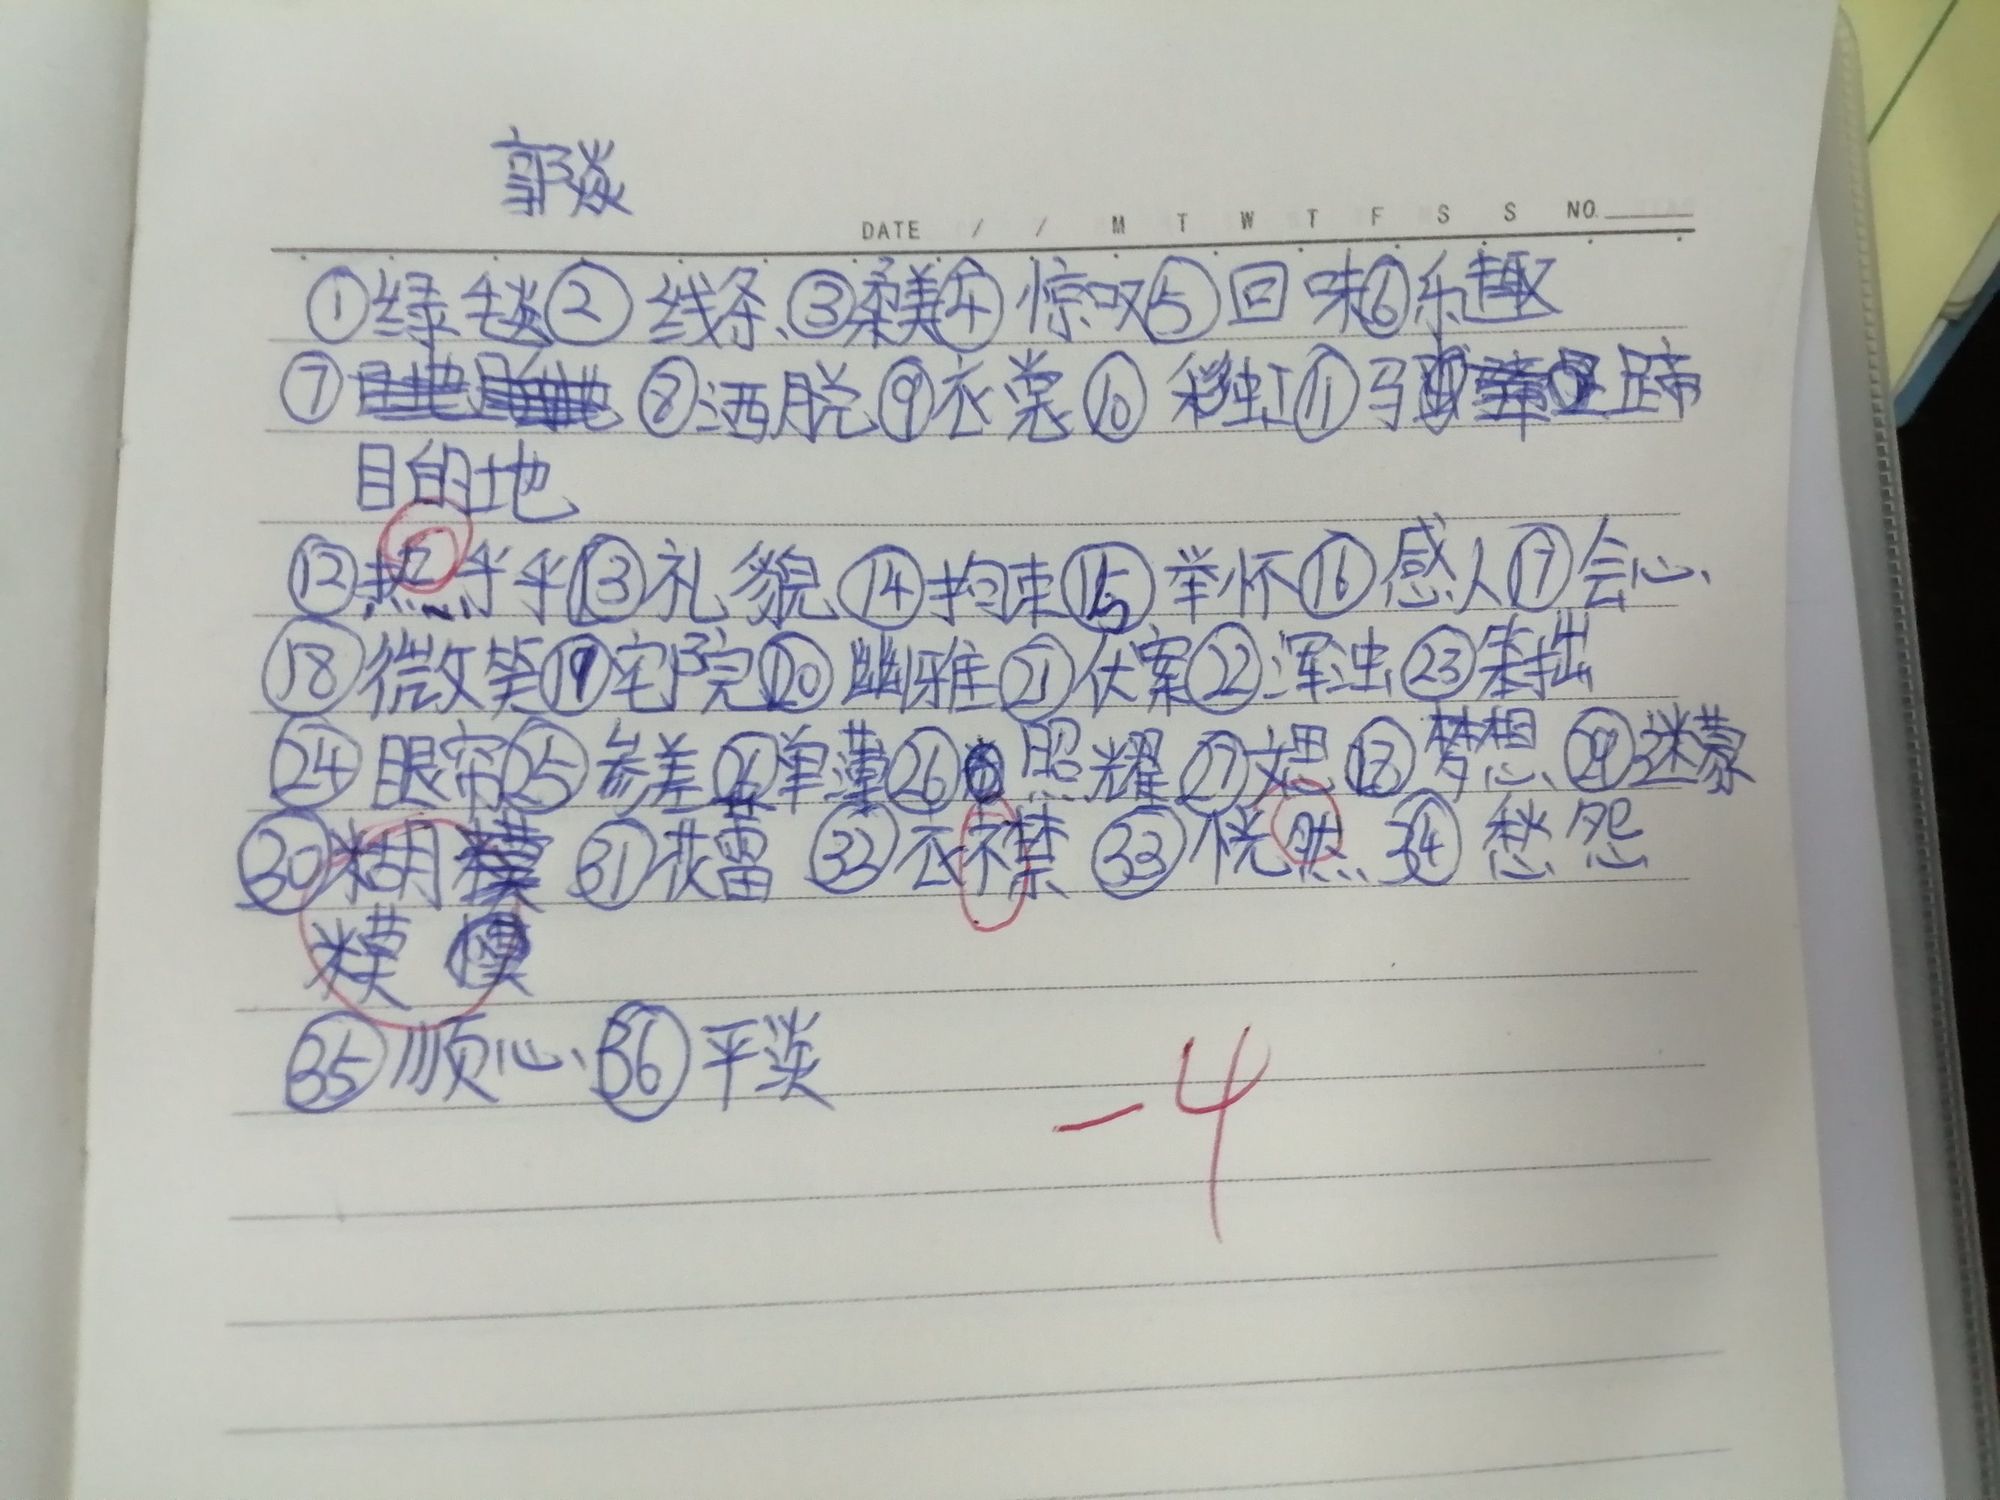 郭焱
DATE / / M T W T F S S NO.
①绿毯②线条、③柔美④惊叹⑤回味⑥乐趣
⑦ ⑧洒脱⑨衣裳⑩彩虹⑪马蹄
目的地
⑫热乎乎⑬礼貌⑭拘束⑮举怀⑯感人⑰会心
⑱微笑⑲宅院⑳幽雅㉑伏案㉒浑浊㉓笨拙
㉔眼帘㉕参差㉖单薄㉖照耀㉗文思㉘梦想㉙迷蒙
㉚糊 ㉛花蕾㉜衣不禁㉝恍然㉞愁怨
糢
㉟顺心㊱平淡
-4